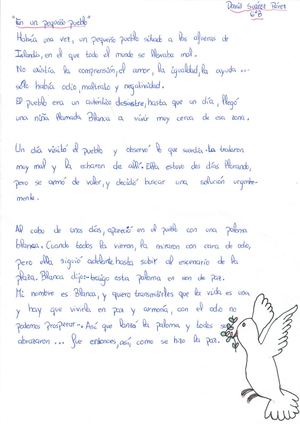 David Suárez Pérez
6ºB
"En un pequeño pueblo"
Había una vez, un pequeño pueblo situado a las afueras de
Islandia, en el que todo el mundo se llevaba mal.
No existía la comprensión, el amor, la igualdad, la ayuda ...
sólo había odio, maltrato y negatividad.
El pueblo era un auténtico desastre, hasta que un día, llegó
una niña llamada Blanca a vivir muy cerca de esa zona.
Un día visitó el pueblo y observó lo que sucedía. La trataron
muy mal y la echaron de allí. Ella estuvo dos días llorando,
pero se armó de valor, y decidió buscar una solución urgente-
mente.
Al cabo de unos días, apareció en el pueblo con una paloma
blanca. Cuando todos la vieron, la miraron con cara de odio,
pero ella siguió adelante hasta subir al escenario de la
plaza. Blanca dijo:-traigo esta paloma en son de paz.
Mi nombre es Blanca, y quiero transmitirles que la vida es una
y hay que vivirla en paz y armonía, con el odio no
podemos prosperar-. Así que lanzó la paloma y todos se
abrazaron ... Fue entonces, así, como se hizo la paz.